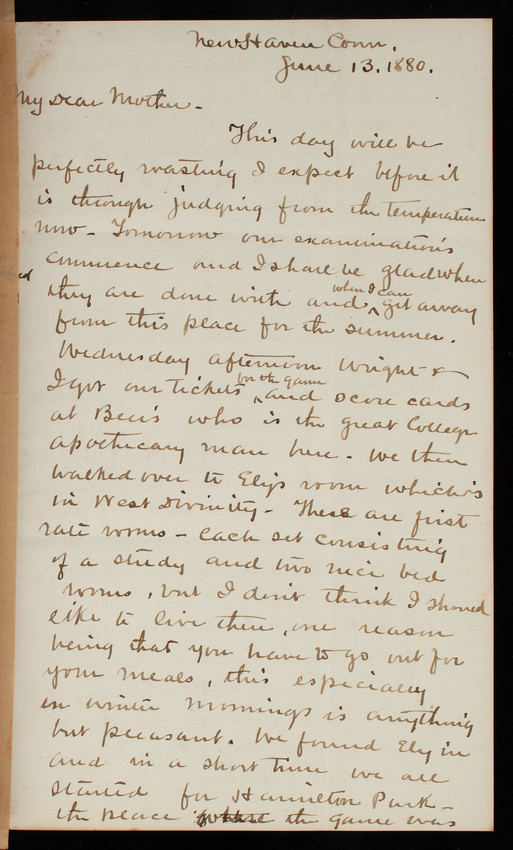 New Haven Conn.
June 13. 1880.
My Dear Mother -
This day will be
perfectly roasting I expect before it
is through judging from the temperature
now - Tomorrow our examinations
commence and I shall be glad when
they are done with and when I can get away
from this place for the summer.
Wednesday afternoon Wright &
I got our tickets for the game and score cards
at Beers who is the great College
apothecary man here - We then
walked over to Ely's room which is
in West Divinity - These are first
rate rooms - each set consisting
of a study and two nice bed
rooms, but I don't think I should
like to live there, one reason
being that you have to go out for
your meals, this especially
in winter mornings is anything
but pleasant. We found Ely in
and in a short time we all
started for Hamilton Park -
the place where the game was